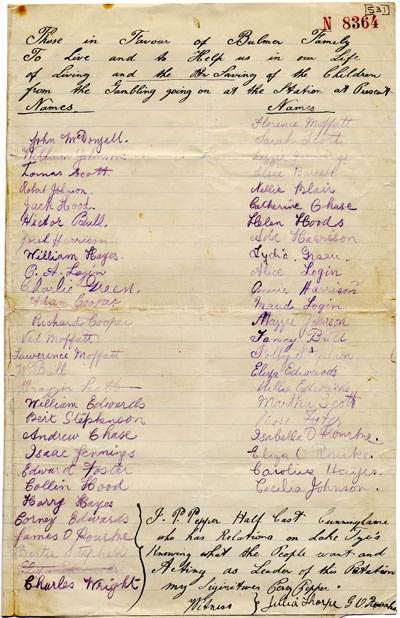 531
N 8364
Those in Favour of Bulmer Family
To Live and to Help us in our Life
of Living and the Saving of the Children
from the Gambling going on at the Station at Present
Names
Names
John McDougall.
William Johnson
Tomas Scott
Robert Johnson.
Jack Hood.
Hector Bull.
Fred Harrison.
William Hayes.
O. A. Login
Charlie Green.
Adam Cooper
Richard Cooper
Ned Moffatt
Lawerence Moffatt
W Bull
William Edwards
Bert Stephenson
Andrew Chase
Isaac Jennings
Edward Foster
Collin Hood
Harry Hayes
Corney Edwards
James O Rourke
Bertie Stephen
Charles Wright
Florence Moffatt
Sarah Scott
Lizzie Jennings
Elsie Barrett
Nellie Blair
Catherine Chase
Helen Hoods
Harrison
Lydia Green.
Alice Login
Annie Harrison
Maud Login
Maggie Johnson
Fanny Bull
Polly Stephen
Eliza Edwards
Nellie Edwards
Martha Scott
Rose Foster
Isabella O Rourke.
Eliza O Rourke.
Caroline Hayes.
Cecilia Johnson.
I. P. Pepper Half Cast Cunninghame
who has Relations on Lake Tyi's
Knowing what the People want and
Acting as Leader of this Petation
my Signitures Percy Pepper.
Witness Julia Thorpe G O Rourke